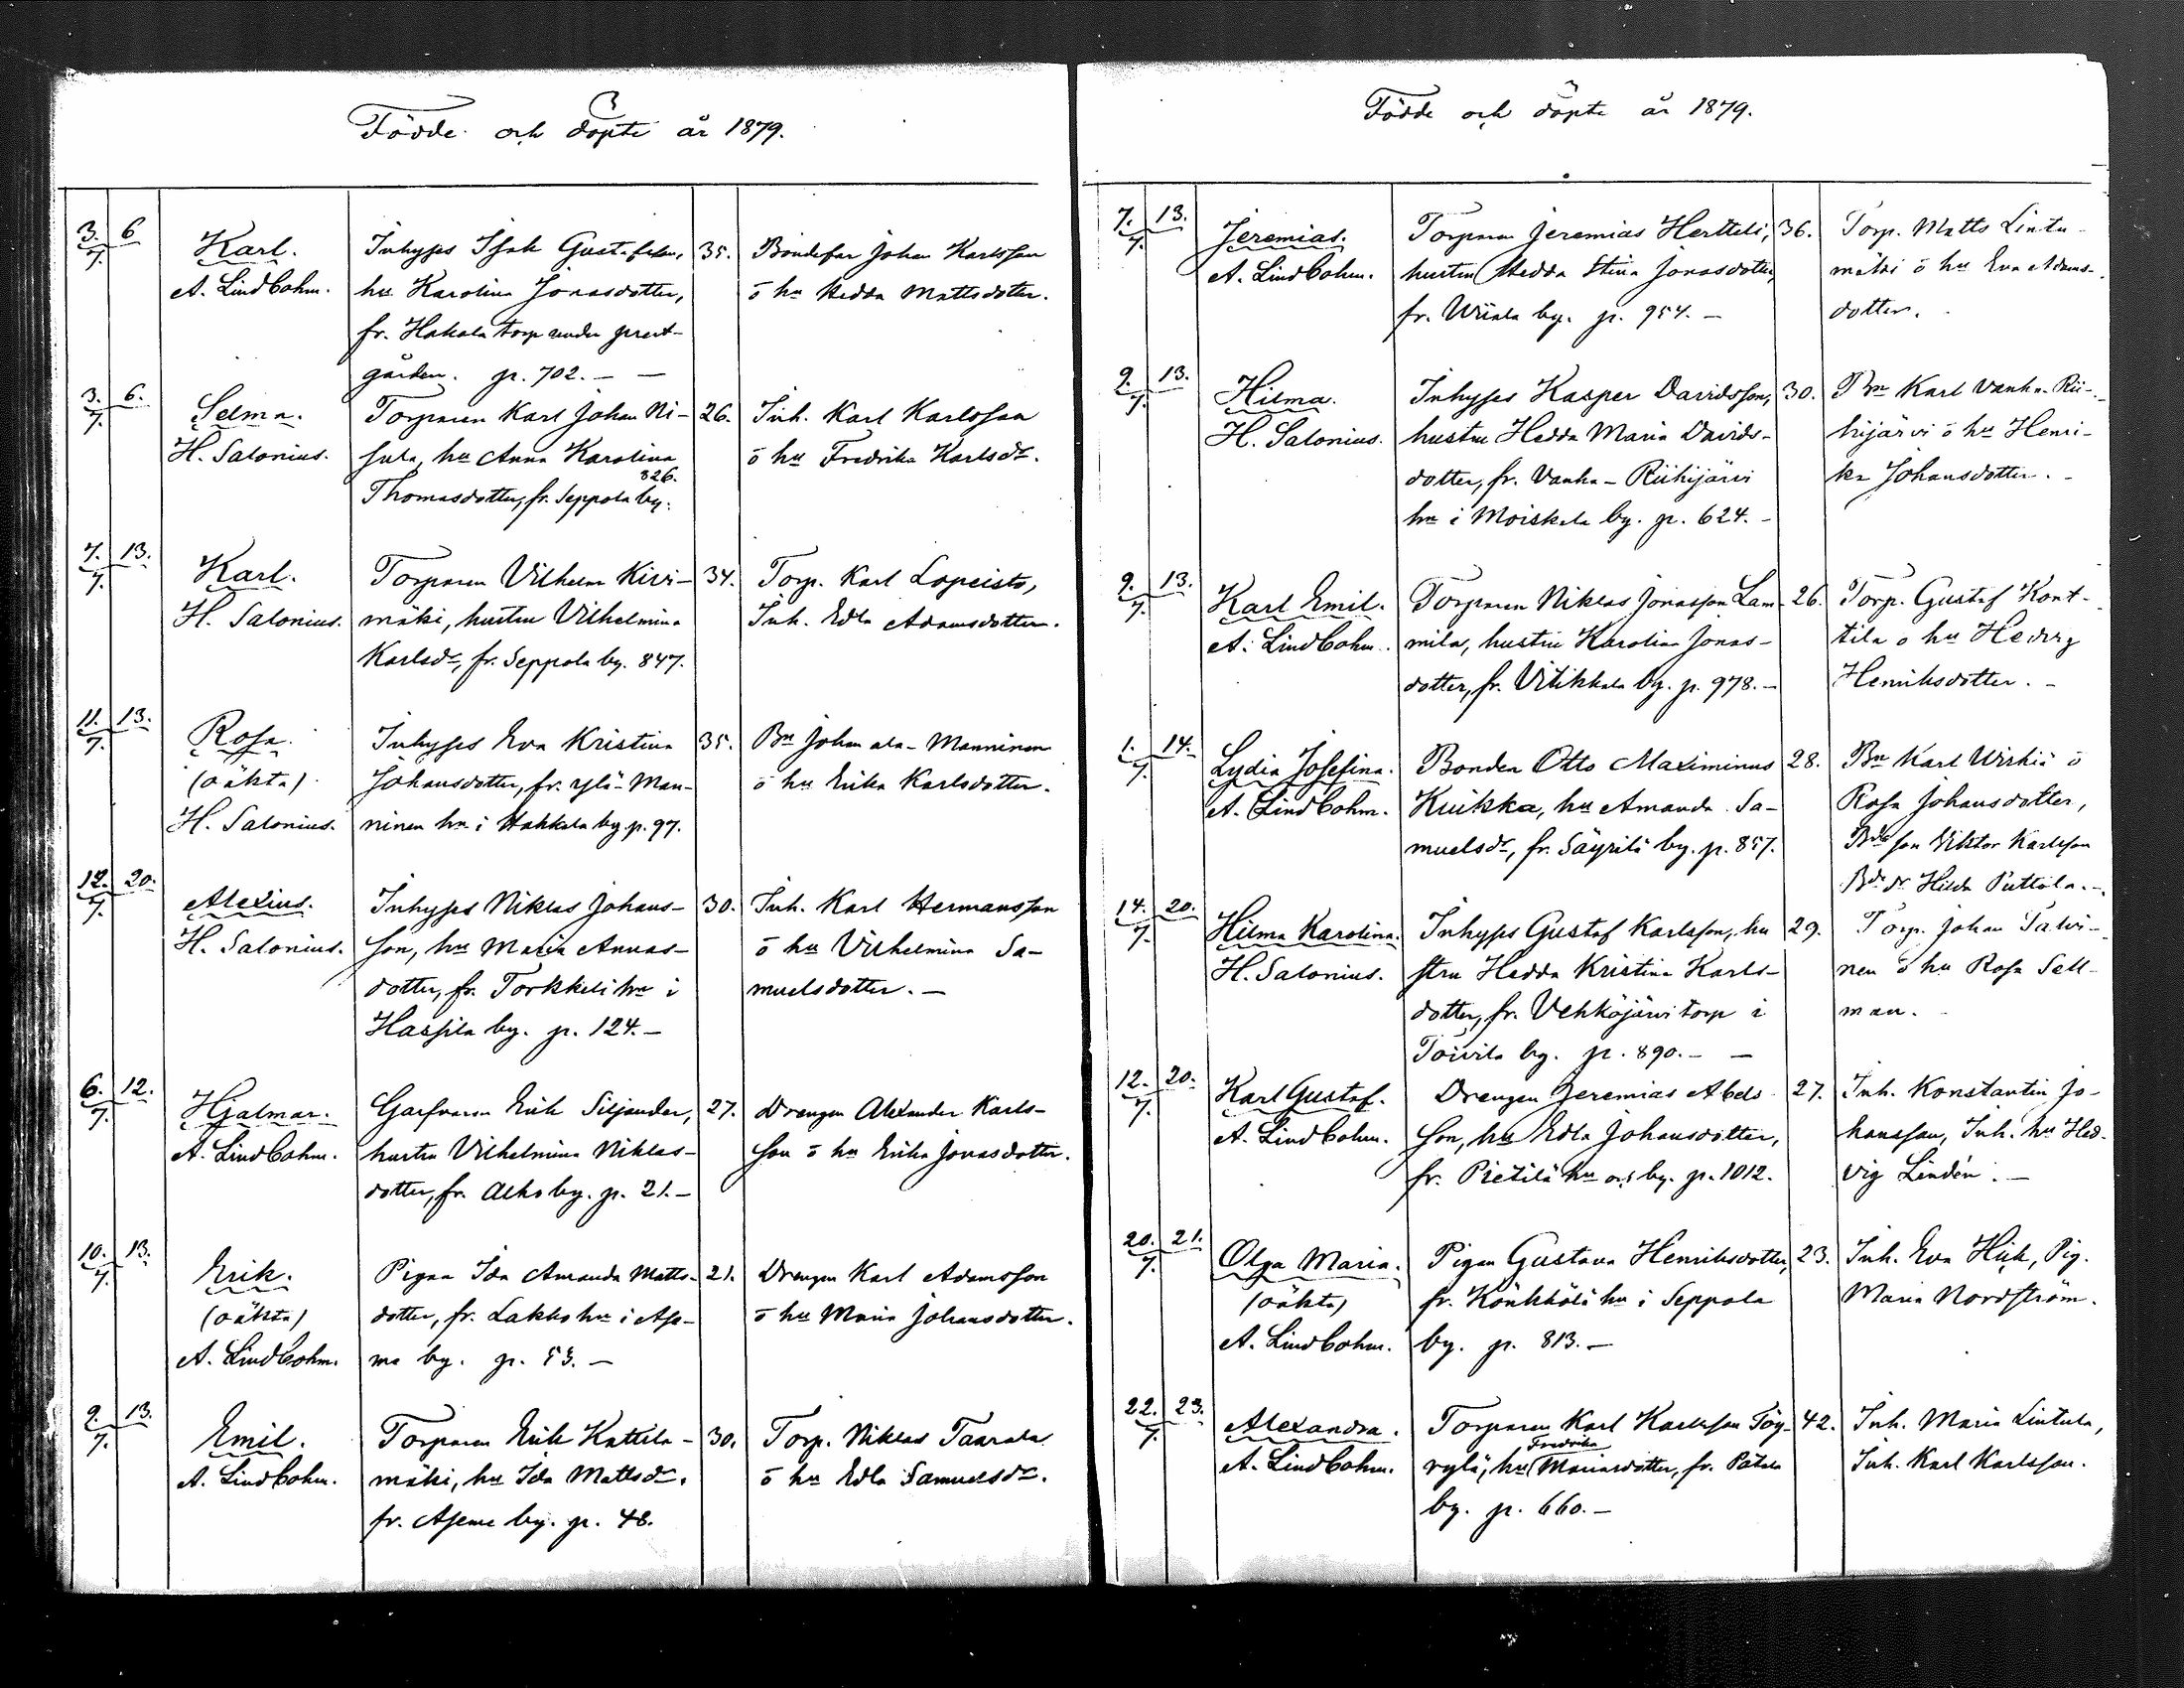 Födde och döpte år 1879.
3. 6
7.
Karl.
A. Lindbohm.
Inhyses Isak Gustafsson,
hu Karolina Jonasdotter,
fr. Hakala torp under prest-
gården. p. 702. — —
35.
Bondefar Johan Karlsson
o hu Hedda Mattsdotter.
3. 6.
7.
Selma.
H. Salonius.
Torparen Karl Johan Ni-
sula, hu Anna Karolina
826.
Thomasdotter, fr. Seppola by.
26.
Inh. Karl Karlsson
o hu Fredrika Karlsdr.
7. 13.
7.
Karl.
H. Salonius.
Torparen Vilhelm Kivi-
mäki, hustru Vilhelmina
Karlsdr, fr. Seppola by. 847.
34.
Torp. Karl Lopeisto,
Inh. Edla Adamsdotter.
11. 13.
7.
Rosa.
(oäkta)
H. Salonius.
Inhyses Eva Kristina
Johansdotter, fr. Ylä-Man-
ninen hn i Hakkala by. p. 97.
35.
Bn Johan ala-Manninen
o hu Erika Karlsdotter.
12. 20.
7.
Alexius.
H. Salonius.
Inhyses Niklas Johans-
son, hu Maria Annas-
dotter, fr. Torkkeli hn i
Haspila by. p. 124. —
30.
Inh. Karl Hermansson
o hu Vilhelmina Sa-
muelsdotter. —
6. 12.
7.
Hjalmar.
A. Lindbohm.
Garfvaren Erik Siljander,
hustru Vilhelmina Niklas-
dotter, fr. Alho by. p. 21. —
27.
Drengen Alexander Karls-
son o hu Erika Jonasdotter.
10. 13.
7.
Erik.
(oäkta)
A. Lindbohm.
Pigan Ida Amanda Matts-
dotter, fr. Lakko hn i Ase-
ma by. p. 53. —
21.
Drengen Karl Adamsson
o hu Maria Johansdotter.
9. 13.
7.
Emil.
A. Lindbohm.
Torparen Erik Kattila-
mäki, hu Ida Mattsdr,
fr. Aseme by. p. 48.
30.
Torp. Niklas Taarala
o hu Edla Samuelsdr.
Födde och döpte år 1879.
7. 13.
7.
Jeremias.
A. Lindbohm.
Torparen Jeremias Hertteli,
hustru Hedda Stina Jonasdotter,
fr. Wiiala by. p. 954. —
36.
Torp. Matts Lintu-
mäki o hu Eva Adams-
dotter.
9. 13.
7.
Hilma.
H. Salonius.
Inhyses Kasper Davidsson,
hustru Hedda Maria Davids-
dotter, fr. Vanha-Riihijärvi
hn i Moiskala by. p. 624. —
30.
Bn Karl Vanha-Rii-
hijärvi o hu Henri-
ka Johansdotter. —
9. 13.
7.
Karl Emil.
A. Lindbohm.
Torparen Niklas Jonasson Lam-
mila, hustru Karolina Jonas-
dotter, fr. Vitikkala by. p. 978. —
26.
Torp. Gustaf Kont-
tila o hu Hedvig
Henriksdotter. —
1. 14.
7.
Lydia Josefina.
A. Lindbohm.
Bonden Otto Maximinus
Kuikka, hu Amanda Sa-
muelsdr, fr. Säyrilä by. p. 857.
28.
Bn Karl Wirkiä o
Rosa Johansdotter,
Bdeson Viktor Karlsson
Bdedr Hilda Puttola. —
14. 20.
7.
Hilma Karolina.
H. Salonius.
Inhyses Gustaf Karlsson, hu
stru Hedda Kristina Karls-
dotter, fr. Vehköjärvi torp i
Toivila by. p. 890. — —
29.
Torp. Johan Salvi-
nen o hu Rosa Sell-
man.
12. 20.
7.
Karl Gustaf.
A. Lindbohm.
Drengen Jeremias Abels
son, hu Edla Johansdotter,
fr. Pietilä hn o. s. by. p. 1012.
27.
Inh. Konstantin Jo-
hansson, Inh. hu Hed-
vig Lindén. —
20. 21.
7.
Olga Maria.
(oäkta)
A. Lindbohm.
Pigan Gustava Henriksdotter,
fr. Könkkölä hn i Seppola
by. p. 813. —
23.
Inh. Eva Hiik, Pig.
Maria Nordström.
22. 23.
7.
Alexandra.
A. Lindbohm.
Torparen Karl Karlsson Töy-
Fredrika
rylä, hu Mariasdotter, fr. Pätola
by. p. 660. —
42.
Inh. Maria Lintula,
Inh. Karl Karlsson.